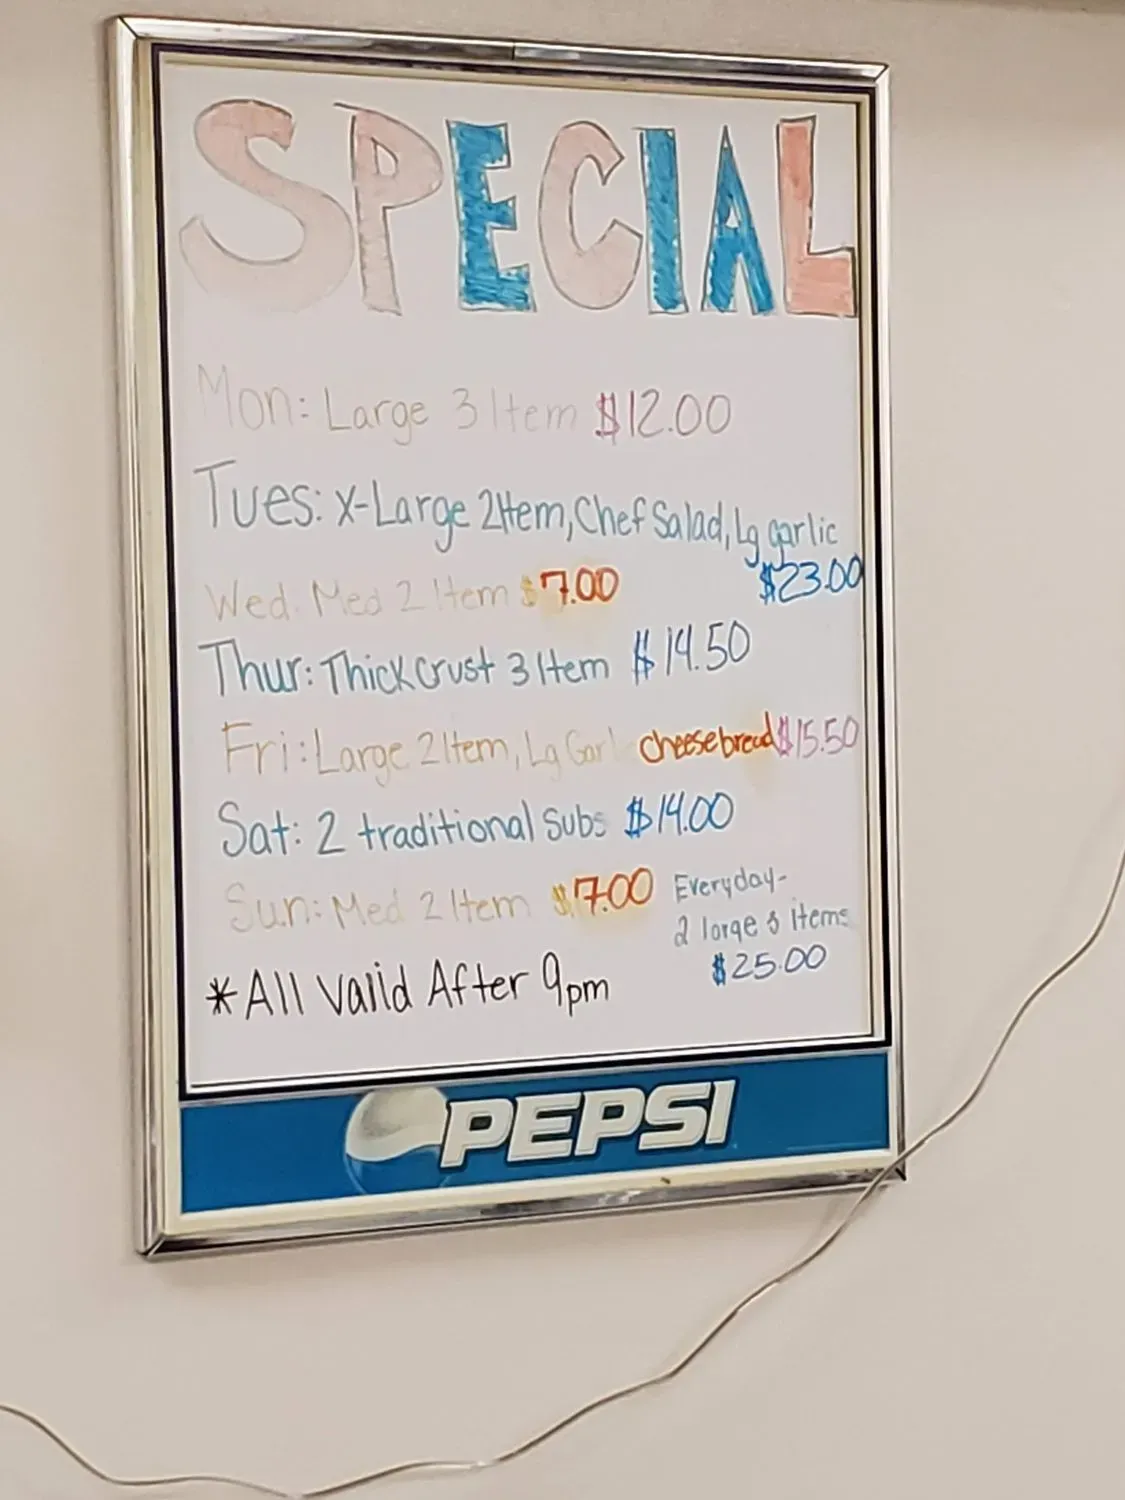 SPECIAL
Mon: Large 3 Item $12.00
Tues: X-Large 2Item, Chef Salad, Lg garlic
$23.00
Wed. Med 2 Item $7.00
Thur: Thick Crust 3 Item $14.50
Fri: Large 2 Item, Lg Gar cheesebread $15.50
Sat: 2 traditional Subs $14.00
Sun: Med 2 Item $7.00
Everyday-
2 large 3 items
$25.00
*All Vaild After 9pm
PEPSI